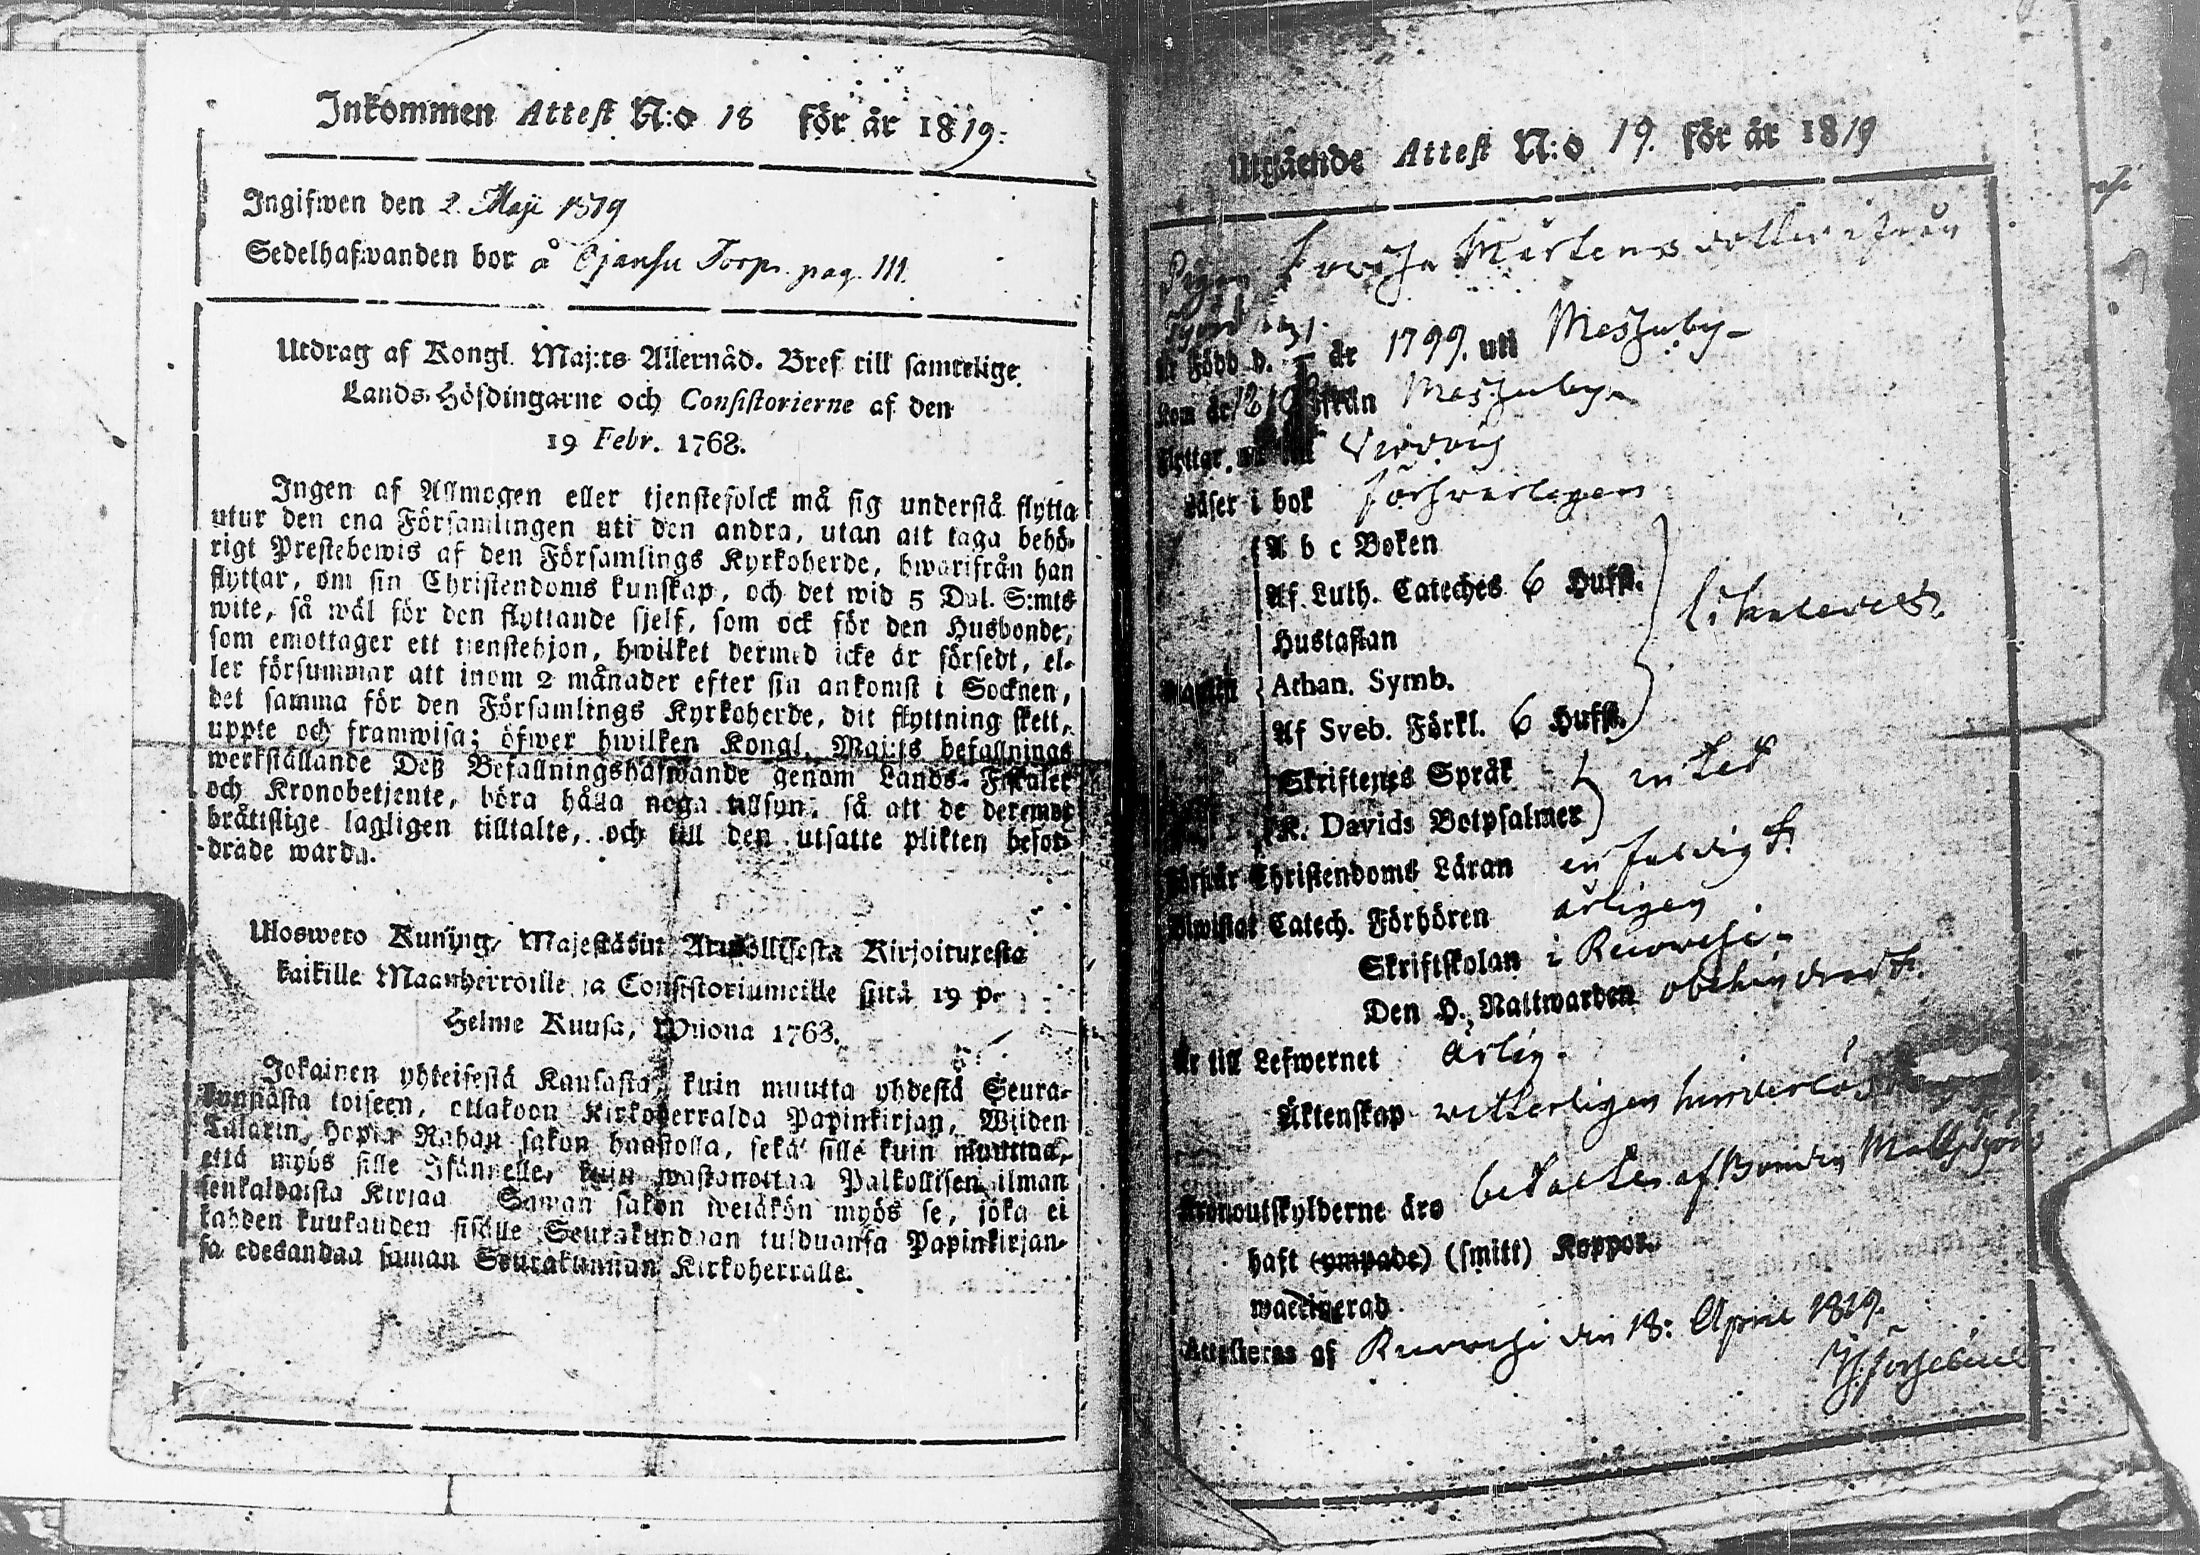 Inkommen Attest N:o 18 för år 1819.
Ingifwen den 2. Maji 1819
Sedelhafwanden bor å Ojansu Torp. pag. 111.
Utdrag af Kongl. Maj:ts Allernåd. Bref till samtelige
Lands-Höfdingarne och Consistorierne af den
19 Febr. 1768.
Ingen af Allmogen eller tjenstefolck må sig understå flytta
utur den ena Församlingen uti den andra, utan att taga behö-
rigt Prestebewis af den Församlings Kyrkoherde, hwarifrån han
flyttar, om sin Christendoms kunskap, och det wid 5 Dal. S:mts
wite, så wäl för den flyttande sjelf, som ock för den Husbonde,
som emottager ett tienstehjon, hwilket dermed icke är försedt, el-
ler försummar att inom 2 månader efter sin ankomst i Socknen,
det samma för den Församlings Kyrkoherde, dit flyttning skett,
uppte och framwisa; öfwer hwilken Kongl. Maj:ts befallnings
werkställande Deß Befallningshafwande genom Lands-Fiskaler
och Kronobetjente, böra hålla noga tillsyn, så att de deremot
bråttslige lagligen tilltalte, och till den utsatte plikten befor-
drade warda.
Ulosweto Kuning. Majestätin Armollisesta Kirjoituxesta
kaikille Maanherroille ja Consistoriumeille siitä 19 p.
Helme Kuusa, Wuona 1768.
Jokainen yhteisestä Kansasta, kuin muutta yhdestä Seura-
kunnasta toiseen, ottakoon Kirkoherralda Papinkirjan, Wijden
Talarin Hopia Rahan sakon haastolla, sekä sille kuin muuttaa,
että myös sille Isännelle, kuin wastanottaa Palkollisen ilman
senkaldaista Kirjaa Saman sakon wetäkön myös se, joka ei
kahden kuukauden sisälle Seurakundaan tulduansa Papinkirjan-
sa edesandaa saman Seurakunnan Kirkoherralle.
Utgående Attest N:o 19. för år 1819
Pigan Märtensdotter ifrån
är Född d. år 1799. uti
Kom år ifrån
Flyttar nu till Wirdois
Läser i bok förswarligen
A b c Boken
Af Luth. Cateches 6 Hufst.
Hustaflan
Athan. Symb.
Af Sveb. Förkl. 6 Hufst.
likaledes.
Skriftenes Språk
K. Davids Botpsalmer
intet
Förstår Christendoms Läran enfaldigt.
Biwistat Catech. Förhören årligen
Skriftskolan i Ruowesi
Den H. Nattwarden obehindradt.
Är till Lefwernet ärlig.
Äktenskap wetterligen hinderlös
Kronoutskylderne äro betalte af Bonden
haft (ympade) (smitt) Koppor.
waccinerad
Attesteras af Ruowesi den 18: April 1819.